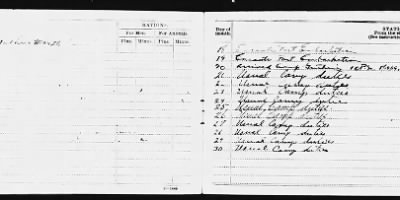 RATIONS.
For Men. For Animals.
Fine. Minus. Plus. Minus.
Day of month.
STATI
From the
(See instruction
18 Enroute Port Embarkation
19 Enroute Port Embarkation
20 arrived Camp
21 Usual Camp duties
22 Usual Camp duties
23 Usual Camp duties
24 Usual Camp duties
25 Usual Camp duties
26 Usual Camp duties
27 Usual Camp duties
28 Usual Camp duties
29 Usual Camp duties
30 Usual Camp duties